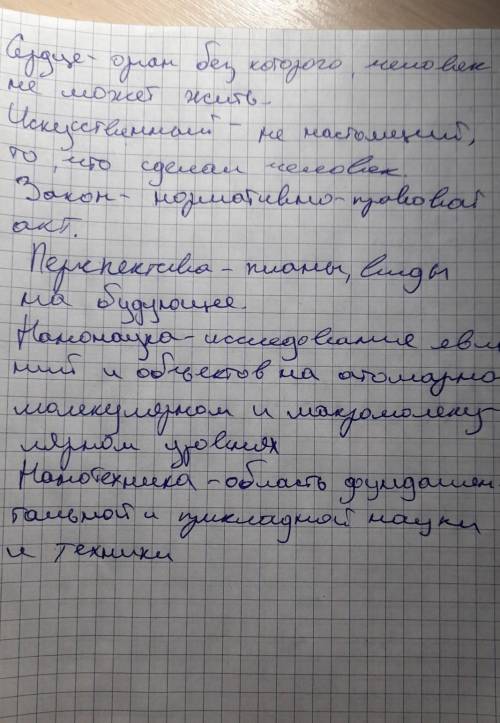 Сердце - орган без которого, человек
не может жить.
Искусственный - не настоящий,
то, что сделал человек.
Закон - нормативно-правовой
акт.
Перспектива - планы, виды
на будующее.
Нанонаука - исследование явле
ний и объектов на атомарно
молекулярном и макромолеку
лярном уровнях
Нанотехника - область фундамен
тальной и прикладной науки
и техники